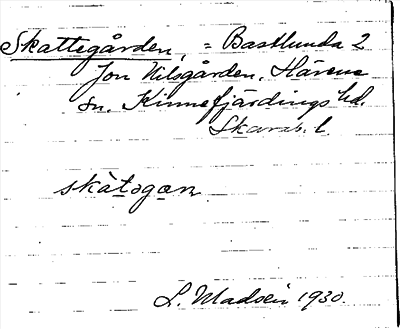 Skattegården, = Bastlunda 2
Jon Nilsgården, Härene
sn. Kinnefjärdings hd.
Skarab. l.
skàtogan
1930.